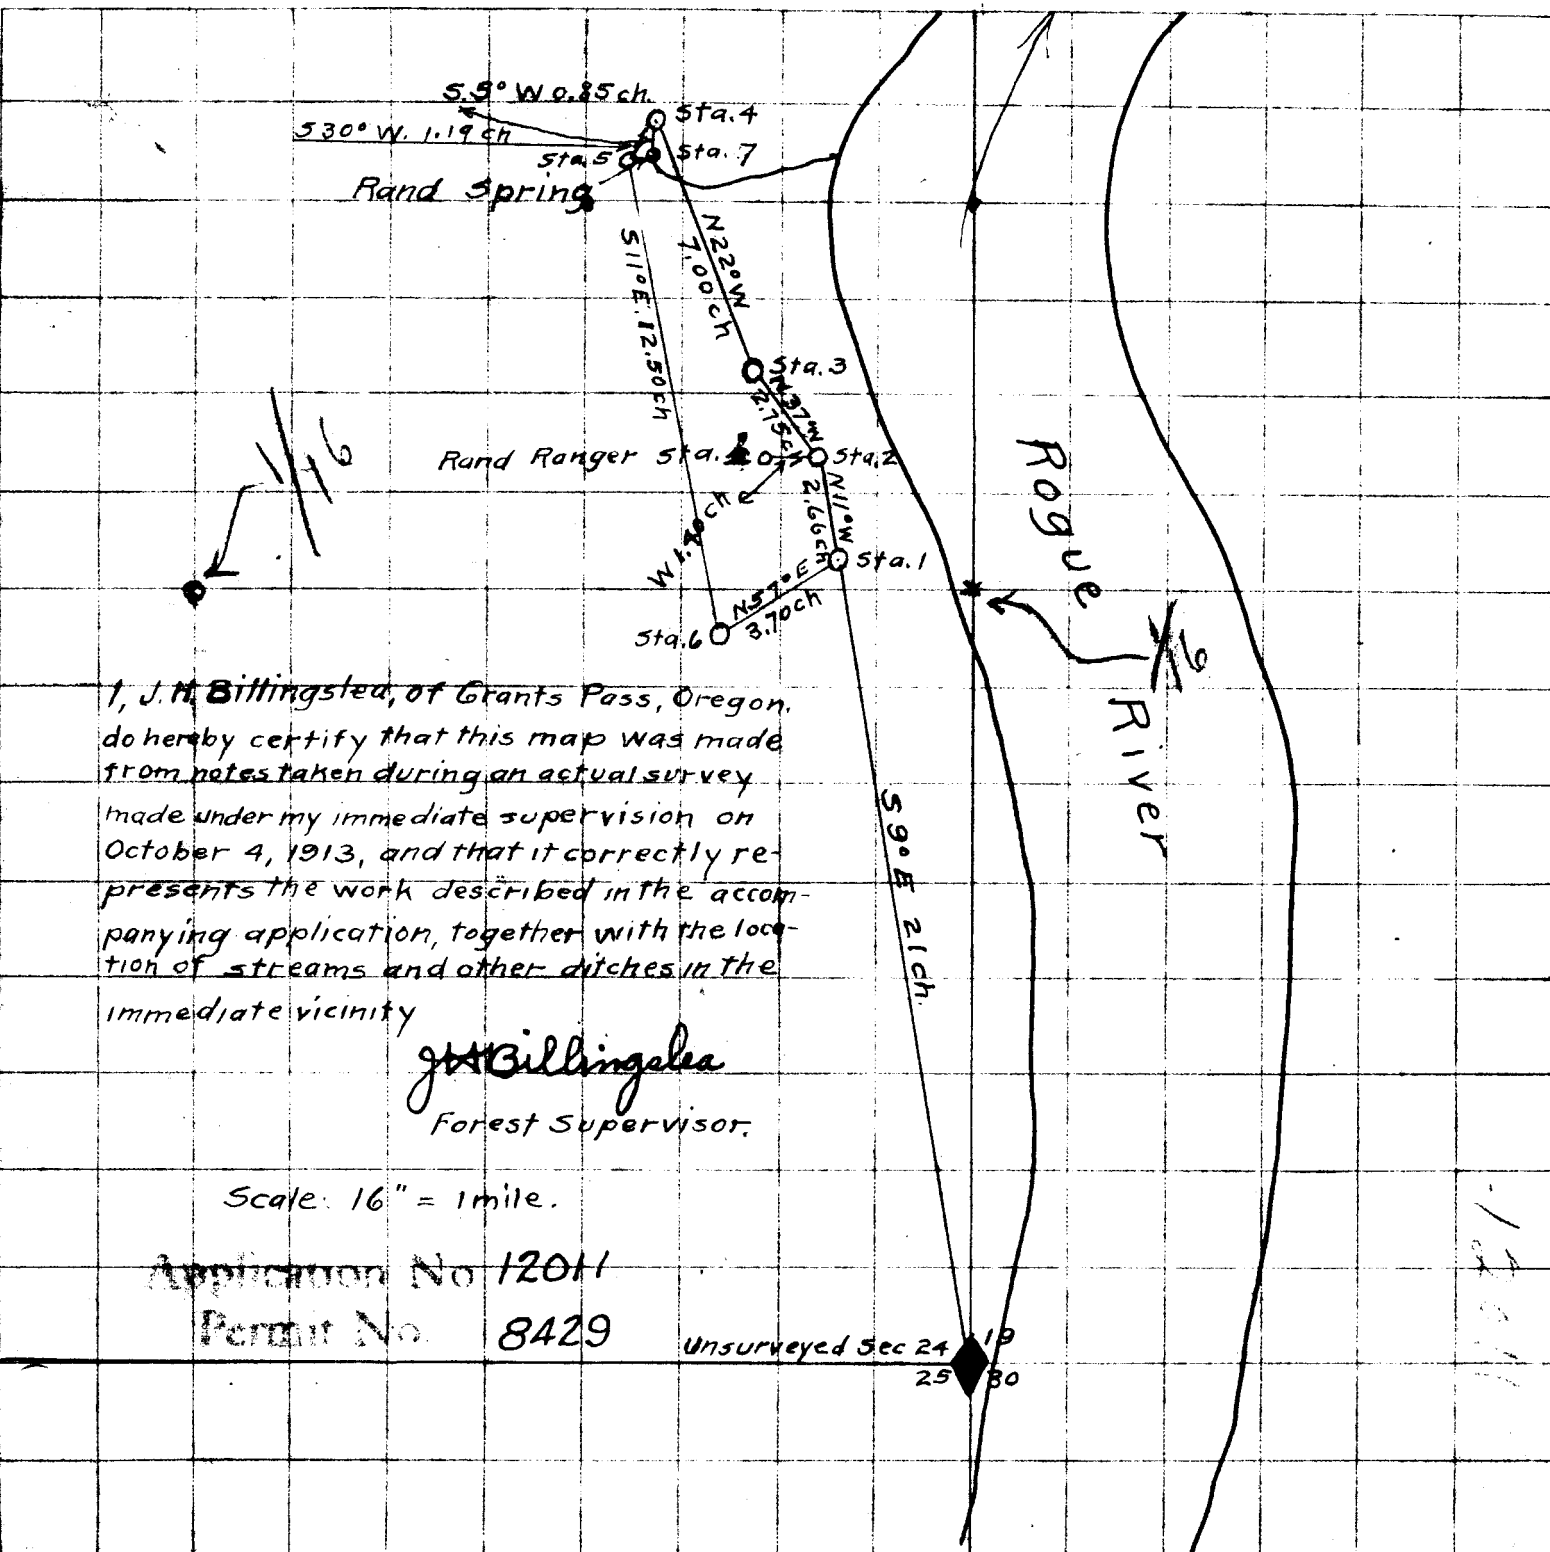 S.5° W 0.85 ch.
Sta. 4
S30° W. 1.19 ch
Sta. 5
Sta. 7
Rand Spring
N22° W
7.00 ch
S11° E. 12.50 ch
Sta. 3
N37° W
2.75 ch
Rand Ranger Sta.
Sta. 2
N11° W
2.66 ch
W
ch
Sta. 1
N57° E
3.70 ch
Sta. 6
1/16
1/16
Rogue
River
I, J. H. Billingslea, of Grants Pass, Oregon,
do hereby certify that this map was made
from notes taken during an actual survey
made under my immediate supervision on
October 4, 1913, and that it correctly re-
presents the work described in the accom-
panying application, together with the loca-
tion of streams and other ditches in the
immediate vicinity
JHBillingslea
Forest Supervisor.
S 9° E 21 ch.
Scale: 16" = 1 mile.
Application No 12011
Permit No. 8429
Unsurveyed Sec 24
19
25
30